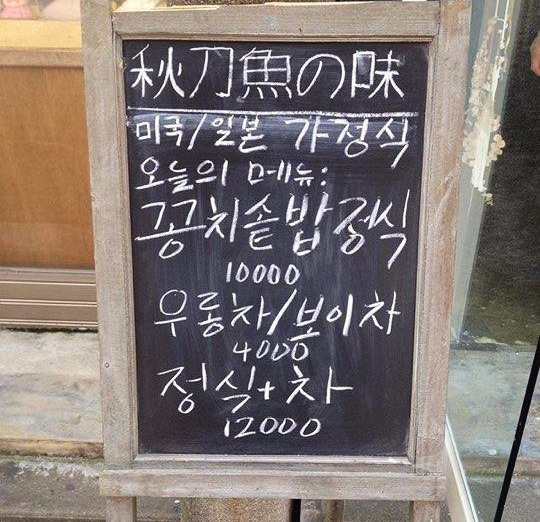 秋刀魚の味
미국/일본 가정식
오늘의 메뉴:
꽁치솥밥정식
10000
우롱차/보이차
4000
정식+차
12000